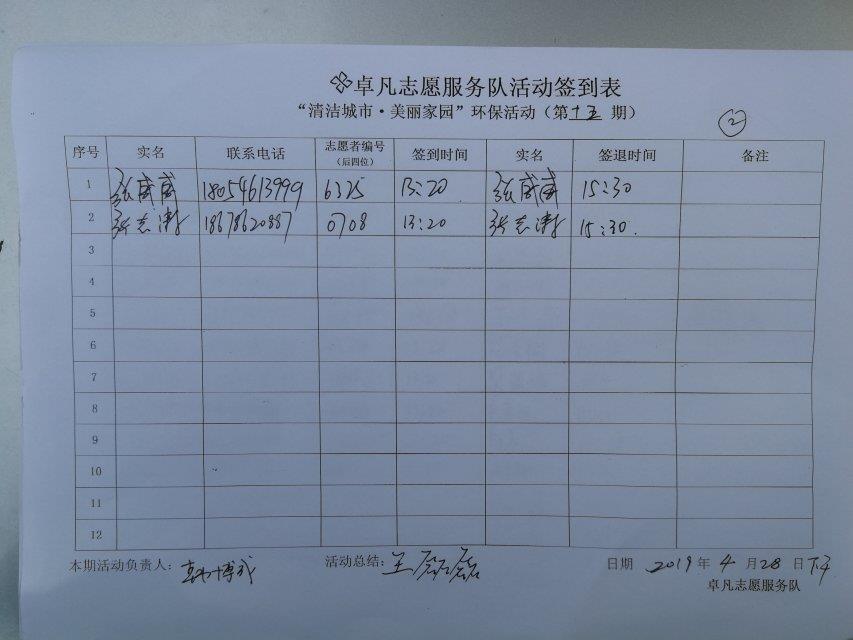 卓凡志愿服务队活动签到表
“清洁城市·美丽家园”环保活动（第十五期）
②
序号 实名 联系电话 志愿者编号（后四位） 签到时间 实名 签退时间 备注
1 张威威 18054613999 6325 13:20 张威威 15:30
2 张志涛 18678620887 0708 13:20 张志涛 15:30.
3
4
5
6
7
8
9
10
11
12
本期活动负责人：韩博武 活动总结：王磊磊 日期 2019年4月28日下午
卓凡志愿服务队